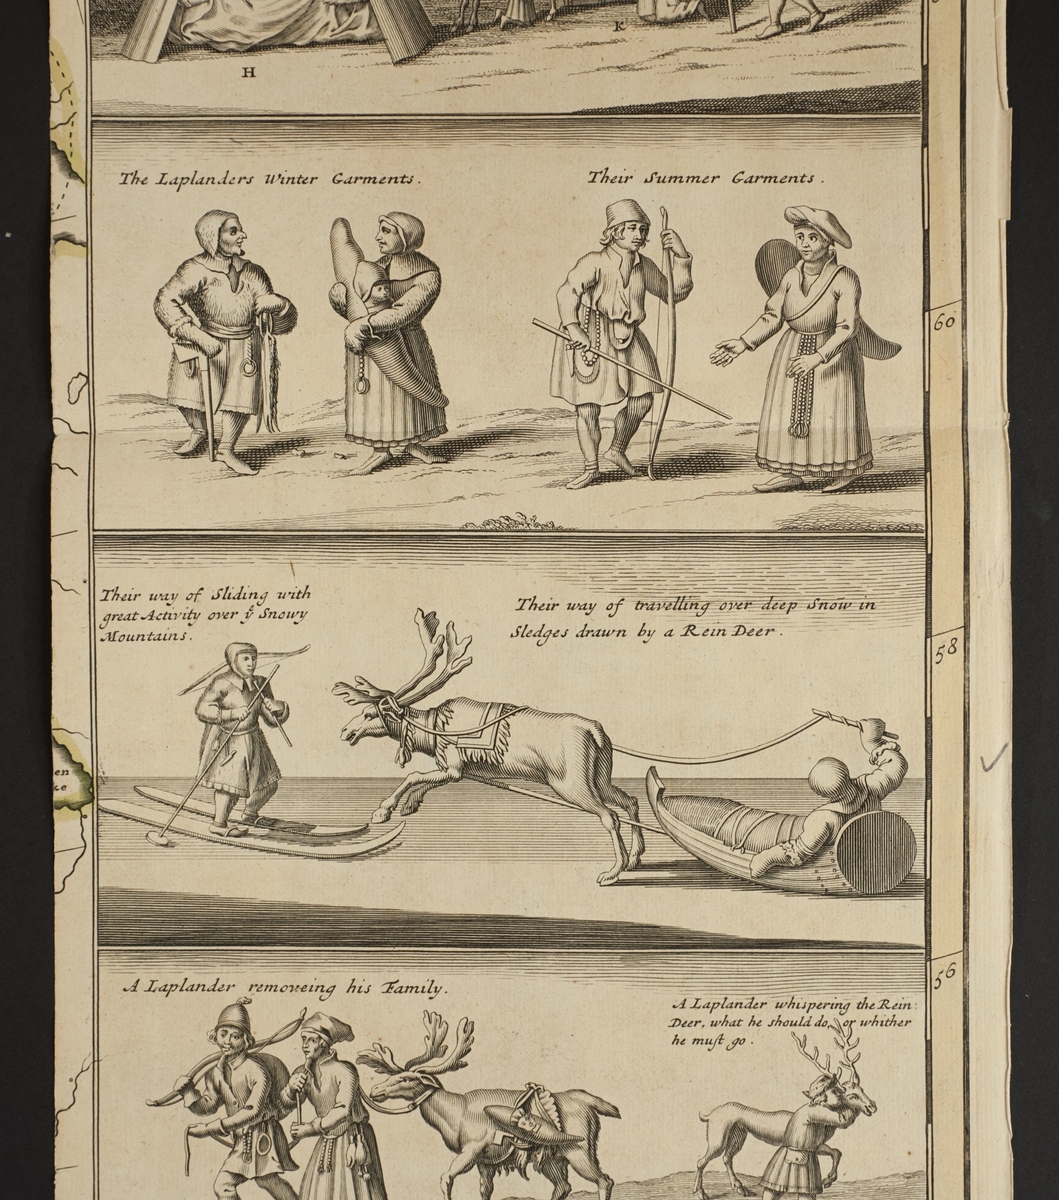 K
H
The Laplanders Winter Garments.
Their Summer Garments.
60
Their way of Sliding with
great Activity over yͤ Snowy
Mountains.
Their way of travelling over deep Snow in
Sledges drawn by a Rein Deer.
58
en
ke
A Laplander removeing his Family.
A Laplander whispering the Rein:
Deer, what he should do, or whither
he muſt go.
56